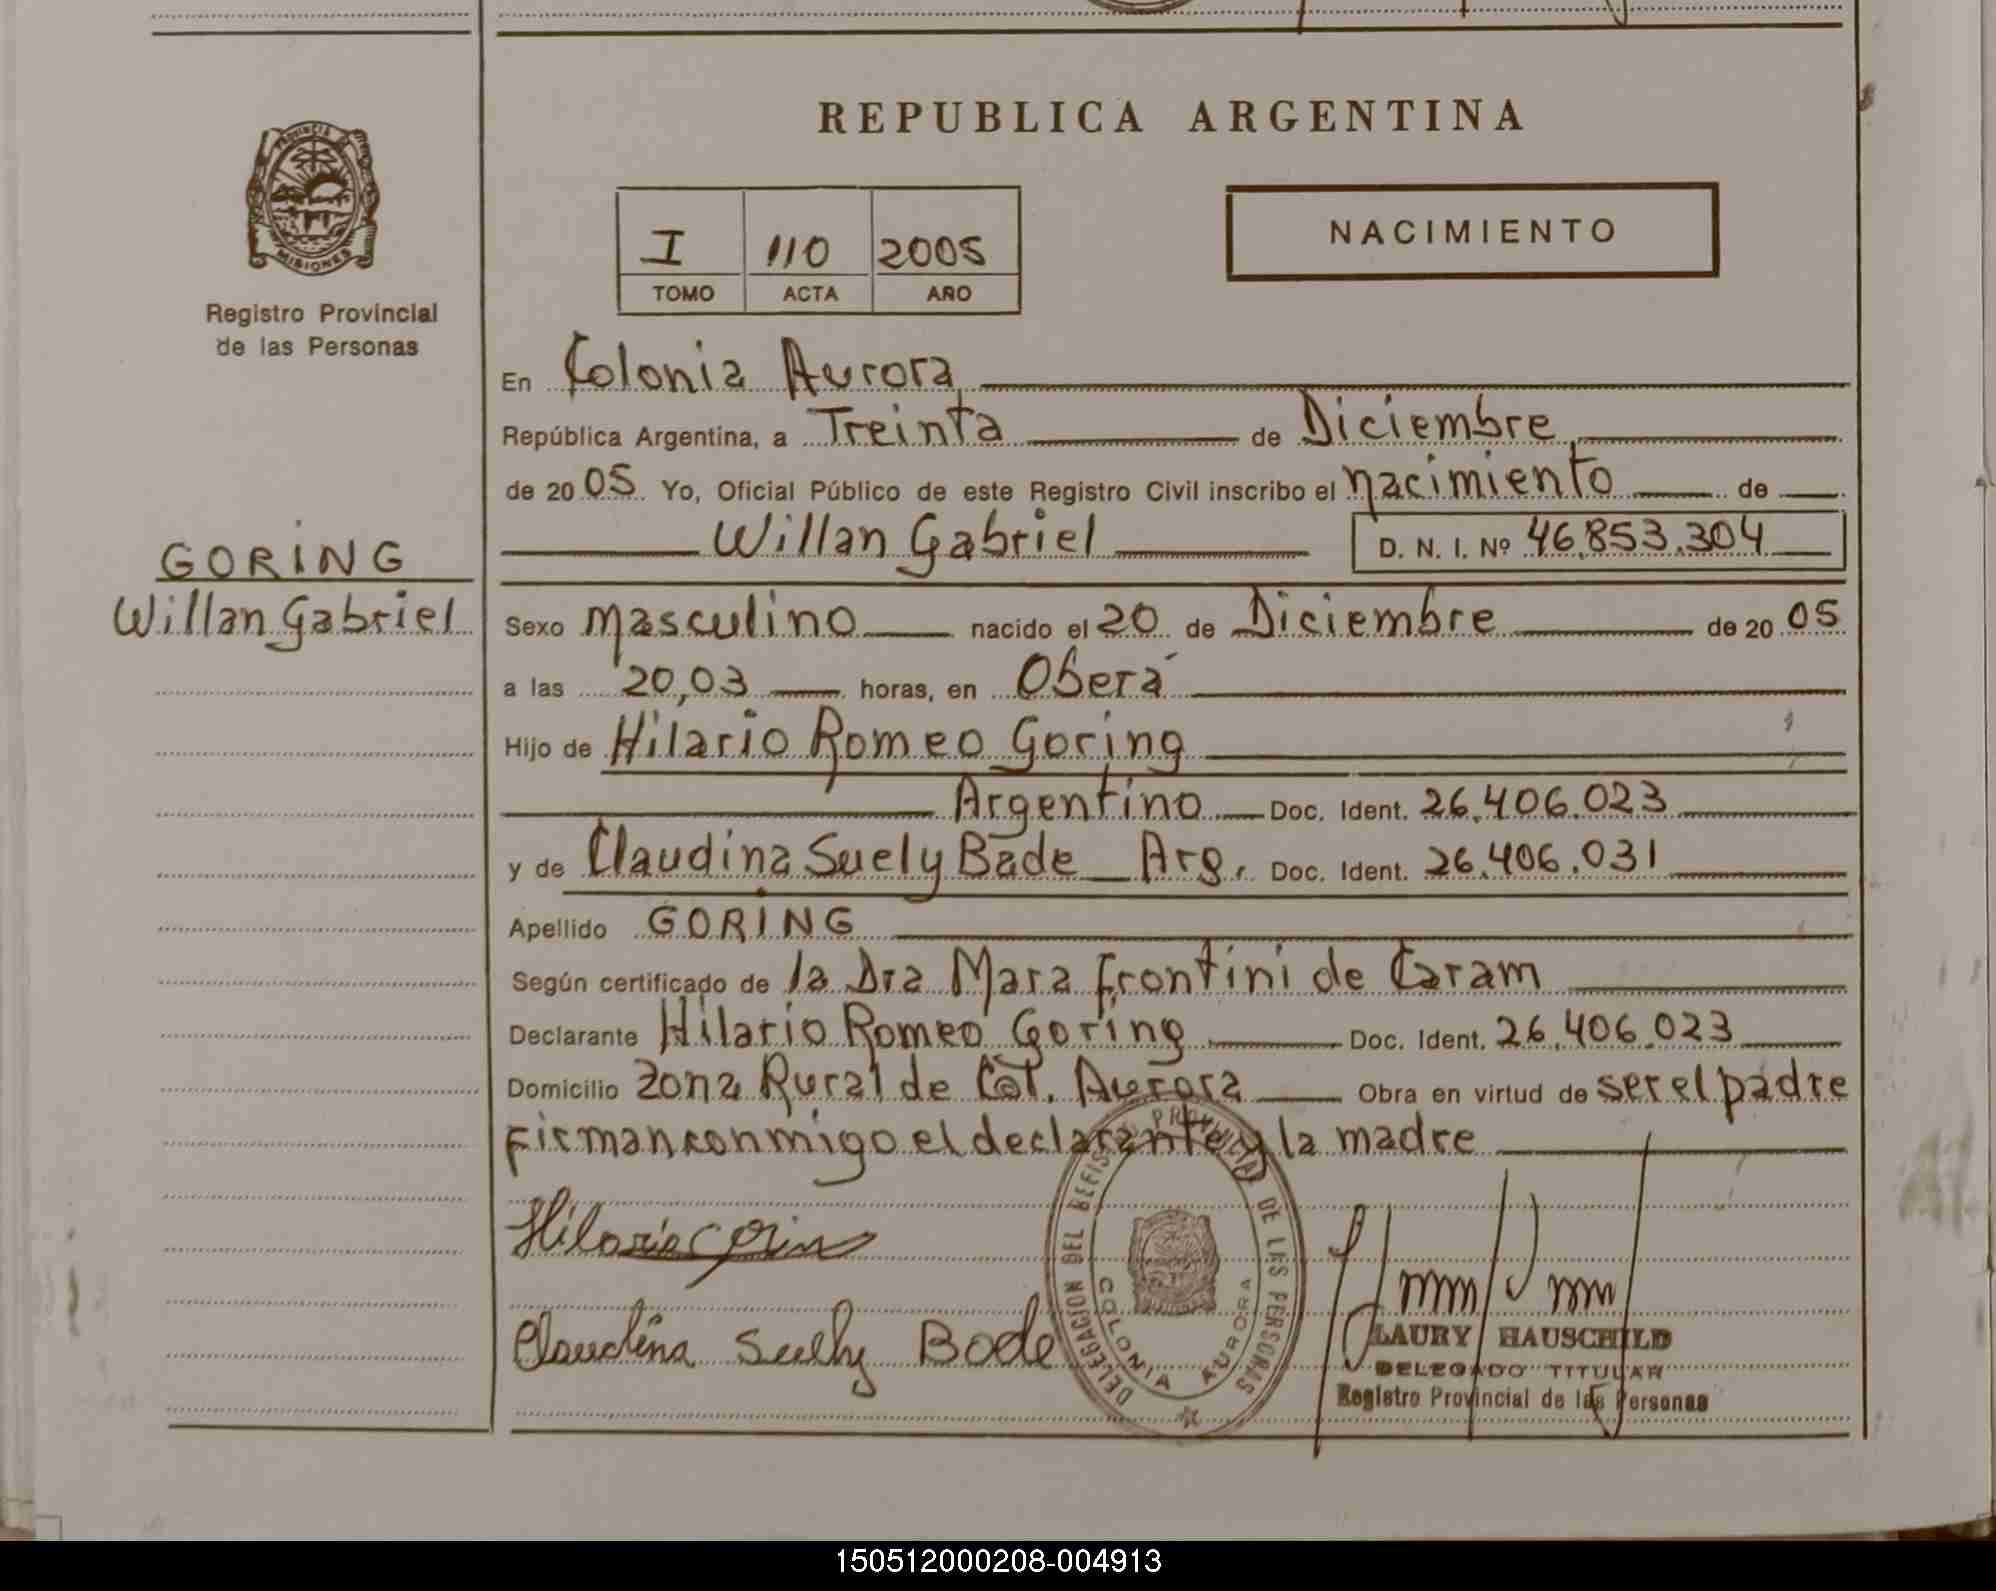 REPUBLICA ARGENTINA
PROVINCIA
MISIONES
Registro Provincial
de las Personas
GORING
Willan Gabriel
NACIMIENTO
I 110 2005
TOMO ACTA AÑO
En Colonia Aurora
República Argentina, a Treinta de Diciembre
de 20 05 Yo, Oficial Público de este Registro Civil inscribo el nacimiento de
Willan Gabriel D. N. I. Nº 46.853.304
Sexo masculino nacido el 20 de Diciembre de 20 05
a las 20,03 horas, en Oberá
Hijo de Hilario Romeo Goring
Argentino Doc. Ident. 26.406.023
y de Claudina Suely Bade Arg. Doc. Ident. 26.406.031
Apellido GORING
Según certificado de la Dra Mara Frontini de Caram
Declarante Hilario Romeo Goring Doc. Ident. 26.406.023
Domicilio Zona Rural de Col. Aurora Obra en virtud de ser el padre
firman conmigo el declarante y la madre
Hilario Gorin
Claudina Suely Bade
DELEGACION DEL REGISTRO PROVINCIAL DE LAS PERSONAS
COLONIA AURORA
LAURY HAUSCHILD
DELEGADO TITULAR
Registro Provincial de las Personas
150512000208-004913